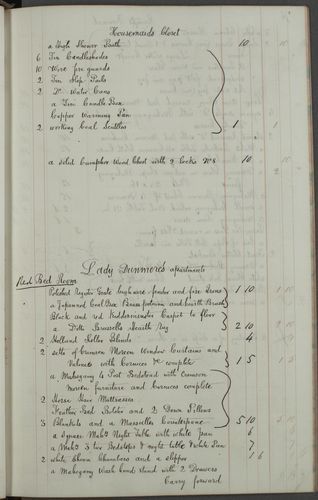 Housemaids Closet
a High Shower Bath 10
6 Tin Candleshades
10 Wire fire guards
2 Tin Slop Pails
2 Do Water Cans
a Tin Candle Box
Copper Warming Pan
2 working Coal Scuttles 1 1
a Camphor Wood Chest with 2 locks No 8 10
Lady Dunmore's apartments
Red Bed Room
Polished Register Grate high wire fender and fire Irons 1 10
a Japanned Coal Box Brass footman and hearth Brush
Black and red Kidderminster Carpet to floor
a Brussells hearth rug 2 10
2 Holland Roller Blinds 4
2 setts of Crimson Moreen Window Curtains and
Valances with Cornices &c complete 1 5
a Mahogany 4 Post Bedstead with Crimson
Moreen furniture and Cornices complete
2 Horse Hair Mattresses
Feather Bed Bolster and 2 Down Pillows
3 Blankets and a Marseilles Counterpane 5 10
a Mahy Night Table with white Pan 6
a Mahy 3 two Bedsteps & night table & white Pan 7
2 white Chamers and a slipper 1 6
a Mahogany Wash hand stand with 2 Drawers
Carry forward